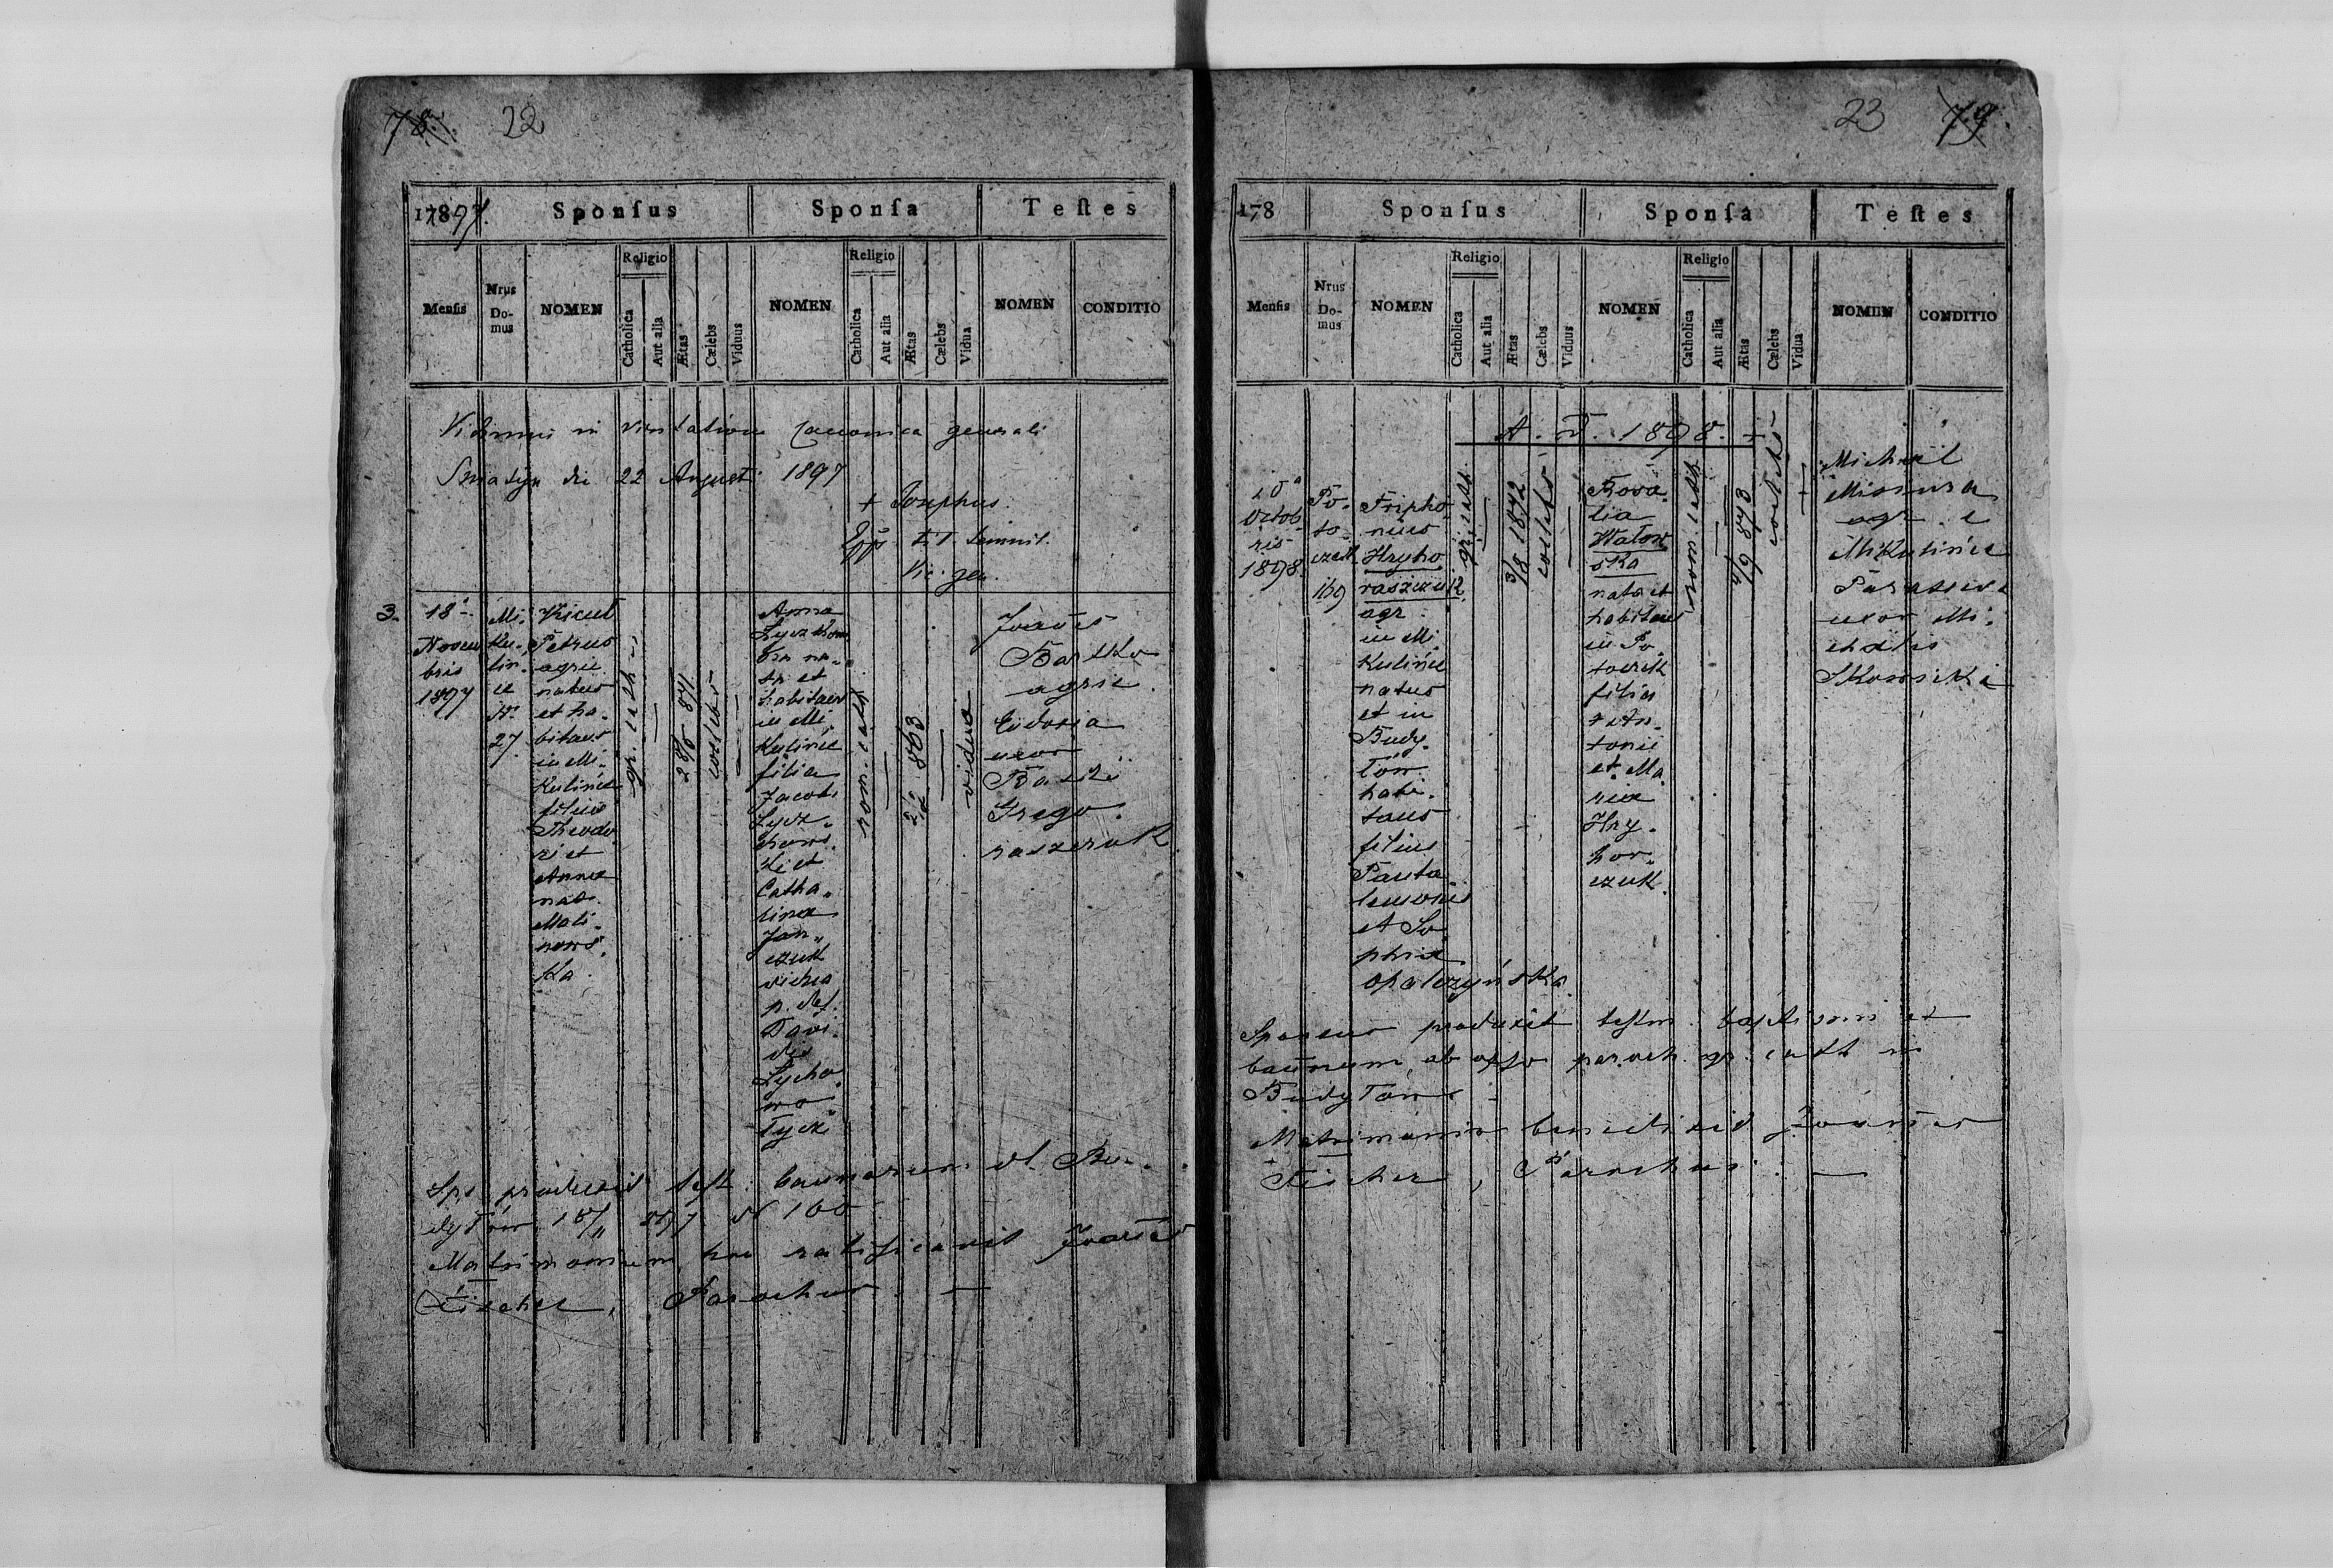 78. 22
17897. Sponſus Sponſa Teſtes
Menſis Nrus Do-mus NOMEN Religio Catholica Aut alia Ætas Cælebs Viduus NOMEN Religio Catholica Aut alia Ætas Cælebs Vidua NOMEN CONDITIO
Vidimus in visitatione Canonica generali
Sniatyn die 22 Augusti 1897
+ Josephus
Epps
Vic. gen.
3. 18
Novem
bris
1897
Mi-
ku-
lin-
ce
N.
27
Petrus
agric
natus
et ha-
bitans
in Mi-
kulince
filius
Theodo
ri et
Annae
nat.
Mali-
nows-
ka.
gr. cath
28/6 871
coelebs
Anna
Łyczkow
ska na-
ta et
habitans
in Mi-
kulince
filia
Jacobi
Łycz-
kows-
ki et
Catha-
rinae
Jan-
czuk
vidua
p. def.
Davi-
dis
Łycho-
wa
tycki
rom. cath
863
vidua
Joañes
Bartko
agric.
Eudoxia
uxor
Grego-
raszczuk
Sps produxit test. bannorum d. Bu-
dyłów 18/11 897 N 100
Matrimonium hoc ratificavit Joañes
Fischer, Parochus. —
23 79.
178 Sponſus Sponſa Teſtes
Menſis Nrus Do-mus NOMEN Religio Catholica Aut alia Ætas Cælebs Viduus NOMEN Religio Catholica Aut alia Ætas Cælebs Vidua NOMEN CONDITIO
A. D. 1898.
20
Octob-
ris
1898.
Po-
to-
czek
169
Tripho-
nius
Hryho
raszczuk
agr.
in Mi-
kulince
natus
et in
Budy-
łów
habi-
tans
filius
Panta
lemonis
et So
phiae
Opalczyńska.
gr. cath.
3/8 1872
coelebs
Rosa-
lia
Wators
ska
nata et
habitans
in Po-
toczek
filia
Antonii
et Ma
riae
Hry-
hor-
czuk.
rom. cath
4/9 873
coelebs
Michael
Missura
agr. e
Mikulince
Parasceva
uxor Mi-
chaelis
Skowicki
Sponsus produxit testm. baptismi et
bannorum, ab offo paroch. gr. cath in
Budyłów
Matrimonio benedixit Joannes
Fischer, Parochus. —